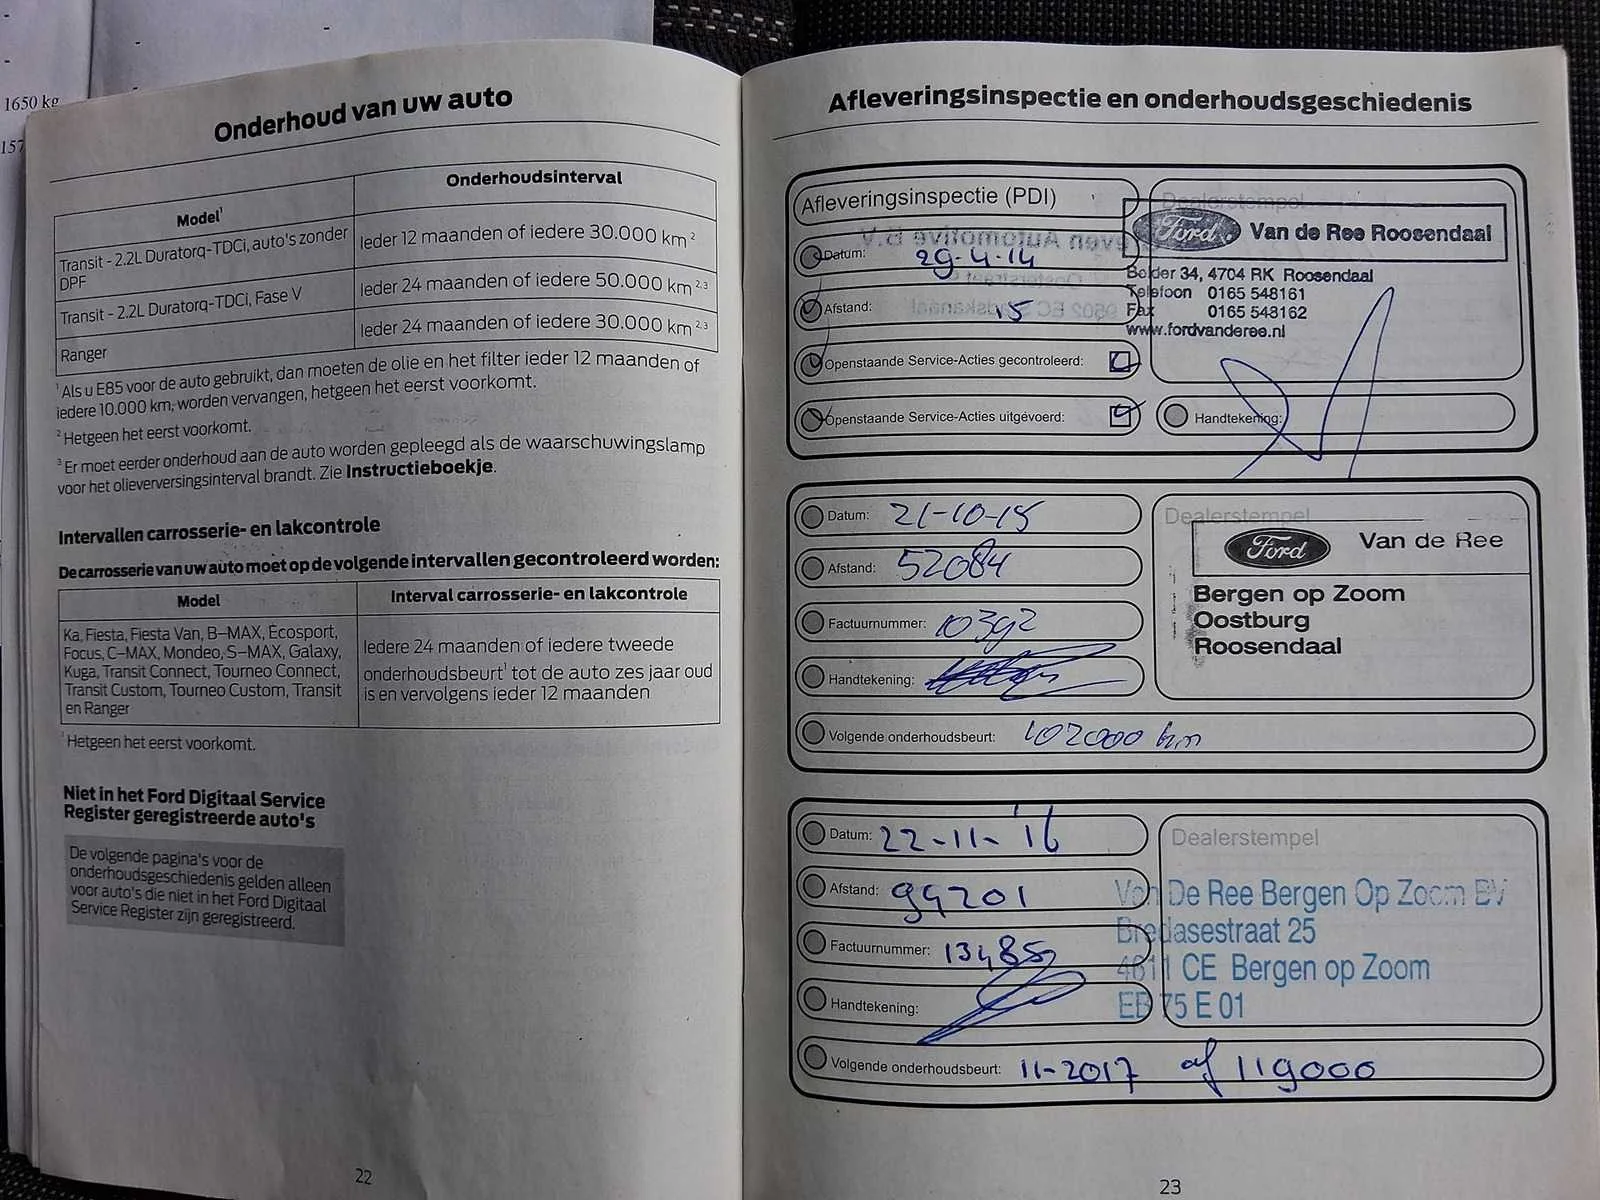 1650 kg
157
Onderhoud van uw auto
Model¹
Onderhoudsinterval
Transit - 2.2L Duratorq-TDCi, auto's zonder DPF
Ieder 12 maanden of iedere 30.000 km ²
Transit - 2.2L Duratorq-TDCi, Fase V
Ieder 24 maanden of iedere 50.000 km ²,³
Ranger
Ieder 24 maanden of iedere 30.000 km ²,³
¹ Als u E85 voor de auto gebruikt, dan moeten de olie en het filter ieder 12 maanden of
iedere 10.000 km, worden vervangen, hetgeen het eerst voorkomt.
² Hetgeen het eerst voorkomt.
³ Er moet eerder onderhoud aan de auto worden gepleegd als de waarschuwingslamp
voor het olieverversingsinterval brandt. Zie Instructieboekje.
Intervallen carrosserie- en lakcontrole
De carrosserie van uw auto moet op de volgende intervallen gecontroleerd worden:
Model
Interval carrosserie- en lakcontrole
Ka, Fiesta, Fiesta Van, B-MAX, Ecosport,
Focus, C-MAX, Mondeo, S-MAX, Galaxy,
Kuga, Transit Connect, Tourneo Connect,
Transit Custom, Tourneo Custom, Transit
en Ranger
Iedere 24 maanden of iedere tweede
onderhoudsbeurt¹ tot de auto zes jaar oud
is en vervolgens ieder 12 maanden
¹ Hetgeen het eerst voorkomt.
Niet in het Ford Digitaal Service
Register geregistreerde auto's
De volgende pagina's voor de
onderhoudsgeschiedenis gelden alleen
voor auto's die niet in het Ford Digitaal
Service Register zijn geregistreerd.
22
Afleveringsinspectie en onderhoudsgeschiedenis
Afleveringsinspectie (PDI)
Dealerstempel
Ford Van de Ree Roosendaal
Datum: 29-4-14
Belder 34, 4704 RK Roosendaal
Telefoon 0165 548161
Afstand: 15
Fax 0165 548162
www.fordvanderee.nl
Openstaande Service-Acties gecontroleerd:
Openstaande Service-Acties uitgévoerd:
Handtekening:
Datum: 21-10-15
Dealerstempel
Ford Van de Ree
Afstand: 52084
Bergen op Zoom
Oostburg
Roosendaal
Factuurnummer: 10392
Handtekening:
Volgende onderhoudsbeurt: 102000 km
Datum: 22-11-'16
Dealerstempel
Afstand: 99201
Van De Ree Bergen Op Zoom BV
Bredasestraat 25
Factuurnummer: 13485
4611 CE Bergen op Zoom
Handtekening:
ED 75 E 01
Volgende onderhoudsbeurt: 11-2017 of 119000
23